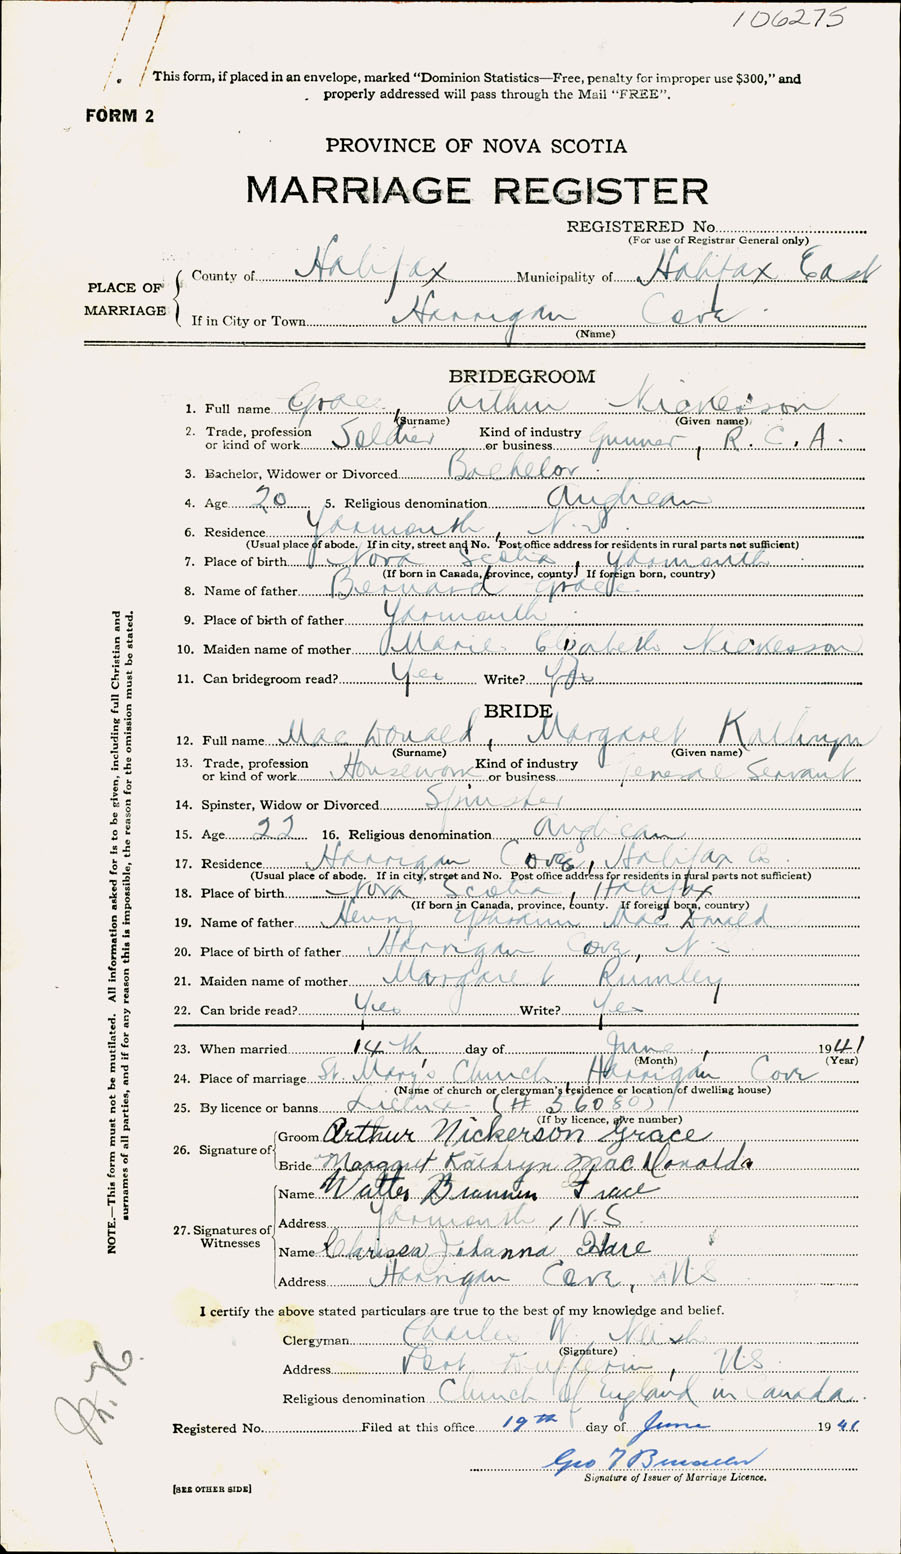 106275
This form, if placed in an envelope, marked "Dominion Statistics—Free, penalty for improper use $300," and
properly addressed will pass through the Mail "FREE".
FORM 2
PROVINCE OF NOVA SCOTIA
MARRIAGE REGISTER
REGISTERED No.
(For use of Registrar General only)
PLACE OF MARRIAGE
County of Halifax Municipality of Halifax East
If in City or Town Harrigan Cove
(Name)
BRIDEGROOM
1. Full name Grace, Arthur Nickerson
(Surname) (Given name)
2. Trade, profession or kind of work Soldier Kind of industry or business Gunner, R.C.A.
3. Bachelor, Widower or Divorced Bachelor
4. Age 20 5. Religious denomination Anglican
6. Residence Yarmouth, N.S.
(Usual place of abode. If in city, street and No. Post office address for residents in rural parts not sufficient)
7. Place of birth Nova Scotia, Yarmouth
(If born in Canada, province, county. If foreign born, country)
8. Name of father Bernard Grace
9. Place of birth of father Yarmouth
10. Maiden name of mother Marie Elizabeth Nickerson
11. Can bridegroom read? Yes Write? Yes
BRIDE
12. Full name MacDonald, Margaret Kathryn
(Surname) (Given name)
13. Trade, profession or kind of work Housework Kind of industry or business General Servant
14. Spinster, Widow or Divorced Spinster
15. Age 22 16. Religious denomination Anglican
17. Residence Harrigan Cove, Halifax Co.
(Usual place of abode. If in city, street and No. Post office address for residents in rural parts not sufficient)
18. Place of birth Nova Scotia, Halifax
(If born in Canada, province, county. If foreign born, country)
19. Name of father Henry Ephraim MacDonald
20. Place of birth of father Harrigan Cove, N.S.
21. Maiden name of mother Margaret Rumley
22. Can bride read? Yes Write? Yes
23. When married 14th day of June, 1941
(Month) (Year)
24. Place of marriage St. Mary's Church Harrigan Cove
(Name of church or clergyman's residence or location of dwelling house)
25. By licence or banns License (# 36080)
(If by licence, give number)
26. Signature of
Groom Arthur Nickerson Grace
Bride Margaret Kathryn MacDonald
27. Signatures of Witnesses
Name Walter Brannen Grace
Address Yarmouth, N.S.
Name Clarissa Johanna Hare
Address Harrigan Cove, NS
I certify the above stated particulars are true to the best of my knowledge and belief.
Clergyman Charles W.
(Signature)
Address Port Dufferin, NS
Religious denomination Church of England in Canada
Registered No. Filed at this office 19th day of June 1941
Geo T
Signature of Issuer of Marriage Licence.
[SEE OTHER SIDE]
NOTE.—This form must not be mutilated. All information asked for is to be given, including full Christian and
surnames of all parties, and if for any reason this is impossible, the reason for the omission must be stated.